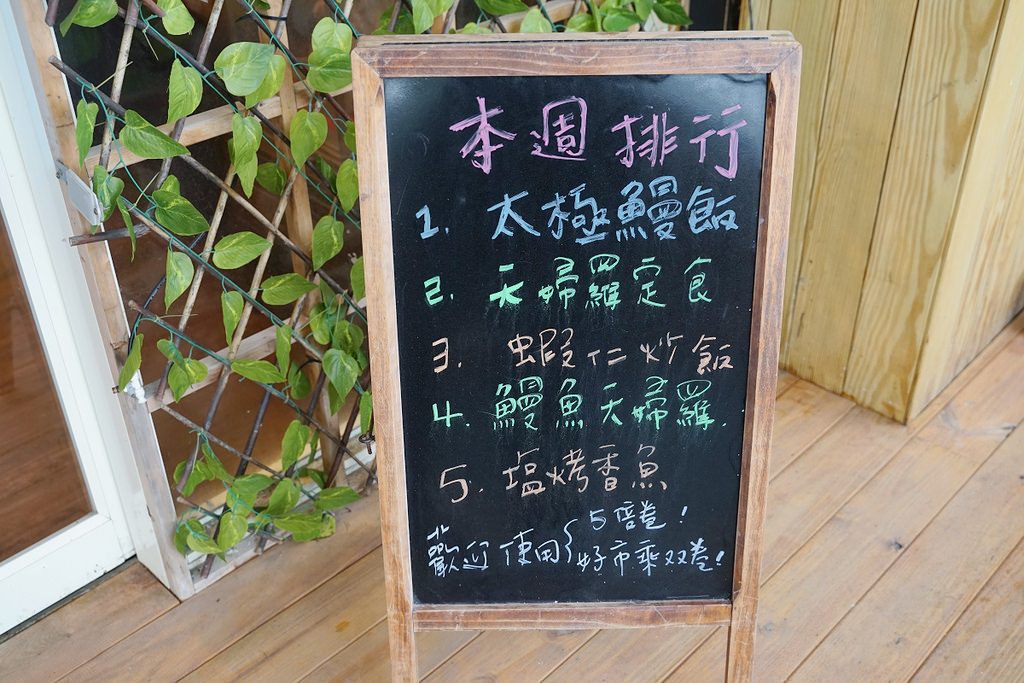 本週排行
1. 太極鰻飯
2. 天婦羅定食
3. 蝦仁炒飯
4. 鰻魚天婦羅.
5. 塩烤香魚
歡迎使用{5倍卷!
好市乘双卷!